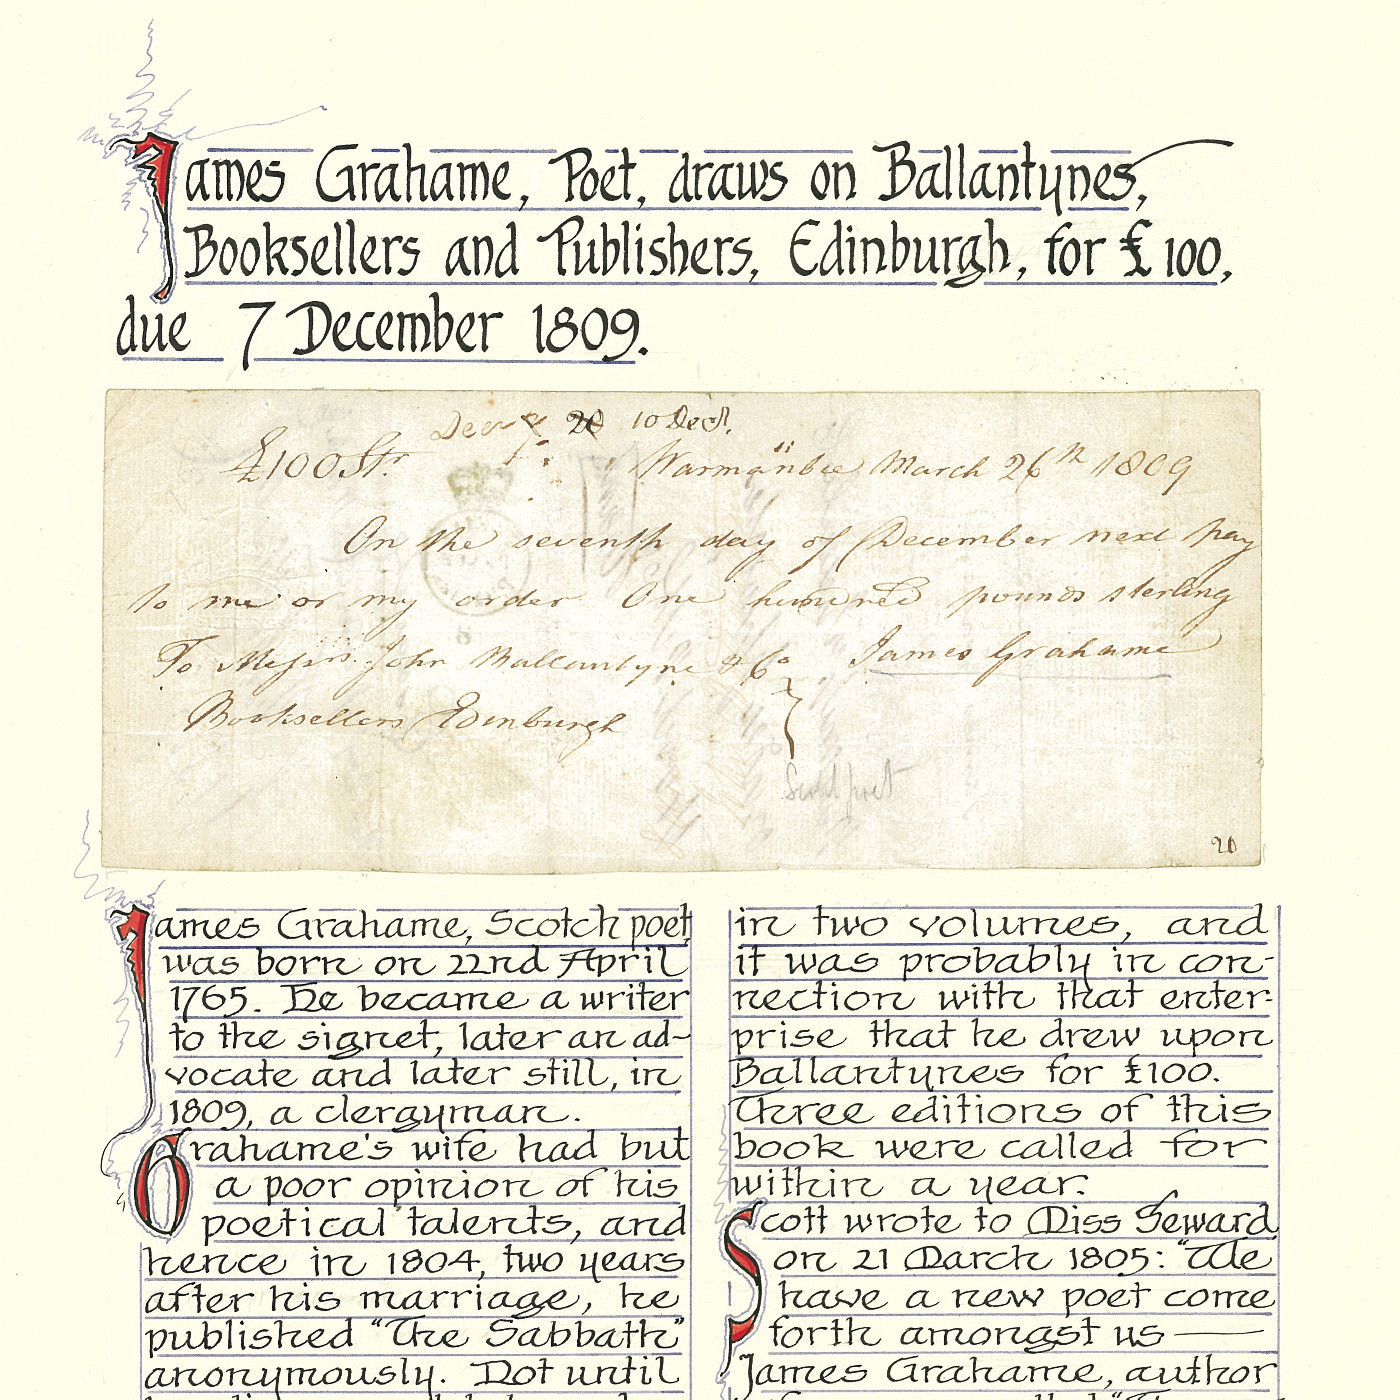 James Grahame, Poet, draws on Ballantynes,
Booksellers and Publishers, Edinburgh, for £100,
due 7 December 1809.
10 Decr.
£100 Str. March 26th 1809
On the seventh day of December next pay
to me or my order One hundred pounds sterling
To Messrs. John Ballantyne & Co James Grahame
Booksellers Edinburgh
20
James Grahame, Scotch poet,
was born on 22nd April
1765. He became a writer
to the signet, later an ad-
vocate and later still, in
1809, a clergyman.
Grahame's wife had but
a poor opinion of his
poetical talents, and
hence in 1804, two years
after his marriage, he
published "The Sabbath"
anonymously. Not until
in two volumes, and
it was probably in con-
nection with that enter-
prise that he drew upon
Ballantynes for £100.
Three editions of this
book were called for
within a year.
Scott wrote to Miss Seward
on 21 March 1805: "We
have a new poet come
forth amongst us —
James Grahame, author